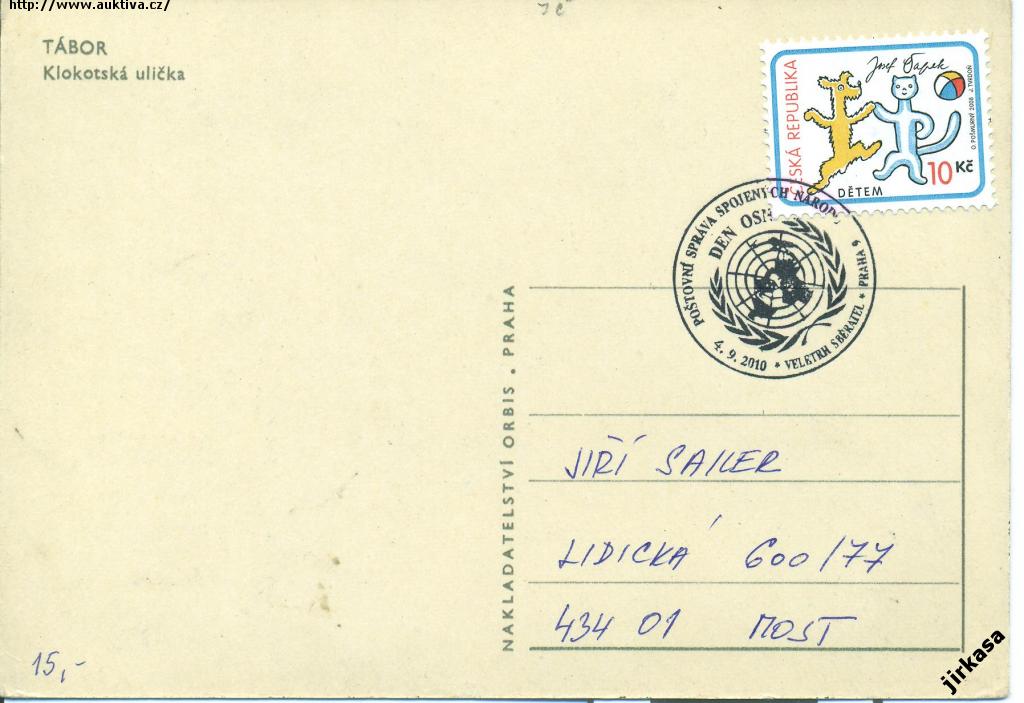 http://www.auktiva.cz/
TÁBOR
Klokotská ulička
ČESKÁ REPUBLIKA
Josef Čapek
O. POŠMURNÝ 2008 J. TVRDOŇ
10 Kč
DĚTEM
POŠTOVNÍ SPRÁVA SPOJENÝCH NÁRODŮ
DEN OSN
4. 9. 2010 * VELETRH SBĚRATEL * PRAHA 9
NAKLADATELSTVÍ ORBIS . PRAHA
JIŘÍ SAILER
LIDICKÁ 600/77
434 01 MOST
15,-
jirkasa